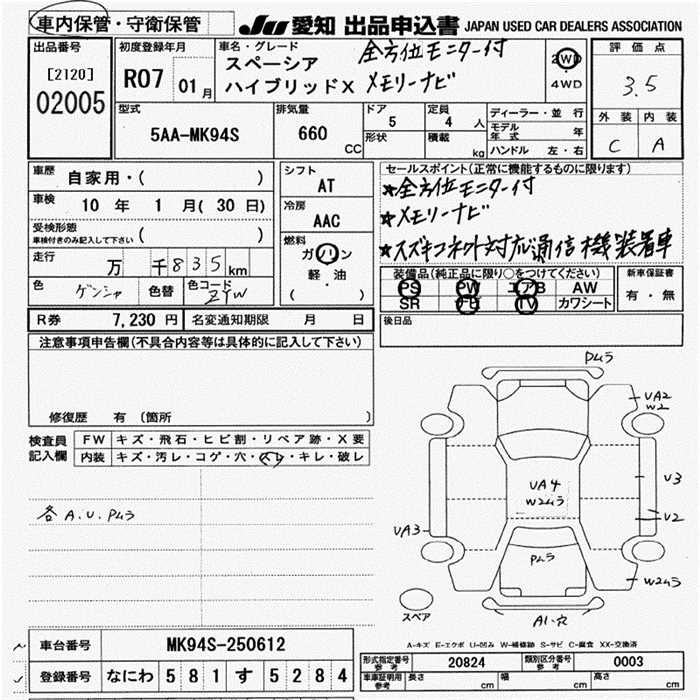 車内保管・守衛保管
JU 愛知 出品申込書 JAPAN USED CAR DEALERS ASSOCIATION
出品番号
[2120]
02005
初度登録年月
R07 01月
車名・グレード
スペーシア
ハイブリッドX
全方位モニター付
メモリーナビ
2WD
4WD
評価点
3.5
外装 内装
C A
型式
5AA-MK94S
排気量
660 CC
ドア
5
形状
定員
4 人
積載
kg
ディーラー・並行
モデル年式 年
ハンドル 左・右
車歴 自家用・( )
車検 10年 1月(30日)
受検形態
車検付きのみ記入して下さい ( )
走行 万 千835km
色 ゲンシャ 色替 色コード ZYW
シフト
AT
冷房
AAC
燃料
ガソリン
軽・油
( )
セールスポイント(正常に機能するものに限り)
★全方位モニター付
★メモリーナビ
★スズキコネクト対応通信機装着車
装備品(純正品に限り○をつけてください)
PS PW エアB AW
SR ナビ TV カワシート
新車保証書
有・無
R券 7,230円 名変通知期限 月 日
後日品
注意事項申告欄(不具合内容等は具体的に記入して下さい)
修復歴 有(箇所 )
検査員記入欄
FW キズ・飛石・ヒビ割・リペア跡・X要
内装 キズ・汚レ・コゲ・穴・スレ・キレ・破レ
各A.U.Pムラ
Pムラ
UA2
W2
U3
U2
UA4
W2ムラ
UA3
Pムラ
W2ムラ
スペア
A1・穴
A-キズ E-エクボ U-凹み W-補修跡 S-サビ C-腐食 XX-交換済
車台番号 MK94S-250612
登録番号 なにわ 581 す 5284
形式指定番号参考 20824 類別区分番号参考 0003
車庫証明用参考 長さ cm 幅 cm 高さ cm